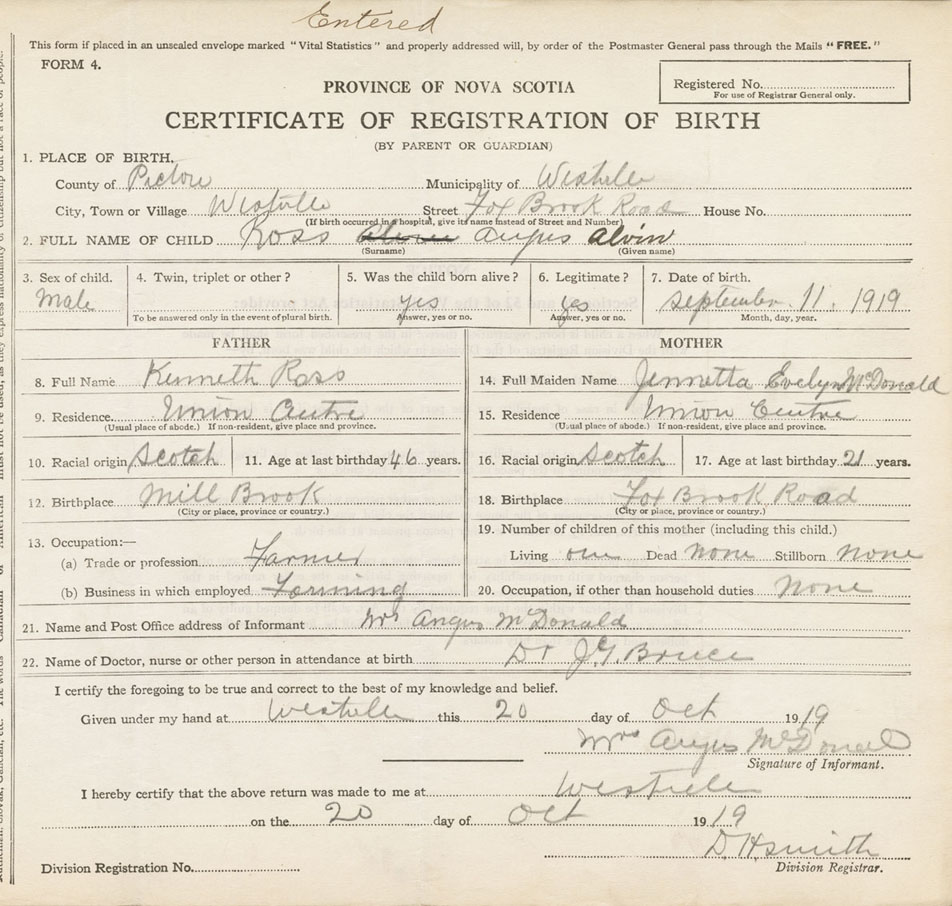 Entered
This form if placed in an unsealed envelope marked "Vital Statistics" and properly addressed will, by order of the Postmaster General pass through the Mails "FREE."
FORM 4.
PROVINCE OF NOVA SCOTIA
Registered No.
For use of Registrar General only.
CERTIFICATE OF REGISTRATION OF BIRTH
(BY PARENT OR GUARDIAN)
1. PLACE OF BIRTH.
County of Pictou Municipality of Westville
City, Town or Village Westville Street Fox Brook Road House No.
(If birth occurred in a hospital, give its name instead of Street and Number)
2. FULL NAME OF CHILD Ross Angus Alvin
(Surname) (Given name)
3. Sex of child. 4. Twin, triplet or other? 5. Was the child born alive? 6. Legitimate? 7. Date of birth.
Male yes yes September 11. 1919
To be answered only in the event of plural birth. Answer, yes or no. Answer, yes or no. Month, day, year.
FATHER MOTHER
8. Full Name Kenneth Ross 14. Full Maiden Name Jennetta Evelyn McDonald
9. Residence Union Centre 15. Residence Union Centre
(Usual place of abode.) If non-resident, give place and province. (Usual place of abode.) If non-resident, give place and province.
10. Racial origin Scotch 11. Age at last birthday 46 years. 16. Racial origin Scotch 17. Age at last birthday 21 years.
12. Birthplace Mill Brook 18. Birthplace Fox Brook Road
(City or place, province or country.) (City or place, province or country.)
13. Occupation:— 19. Number of children of this mother (including this child.)
(a) Trade or profession Farmer Living one Dead none Stillborn none
(b) Business in which employed Farming 20. Occupation, if other than household duties none
21. Name and Post Office address of Informant Mrs Angus McDonald
22. Name of Doctor, nurse or other person in attendance at birth Dr J.G. Bruce
I certify the foregoing to be true and correct to the best of my knowledge and belief.
Given under my hand at Westville this 20 day of Oct 1919
Mrs Angus McDonald
Signature of Informant.
I hereby certify that the above return was made to me at Westville
on the 20 day of Oct 1919
D. H. Smith
Division Registration No. Division Registrar.